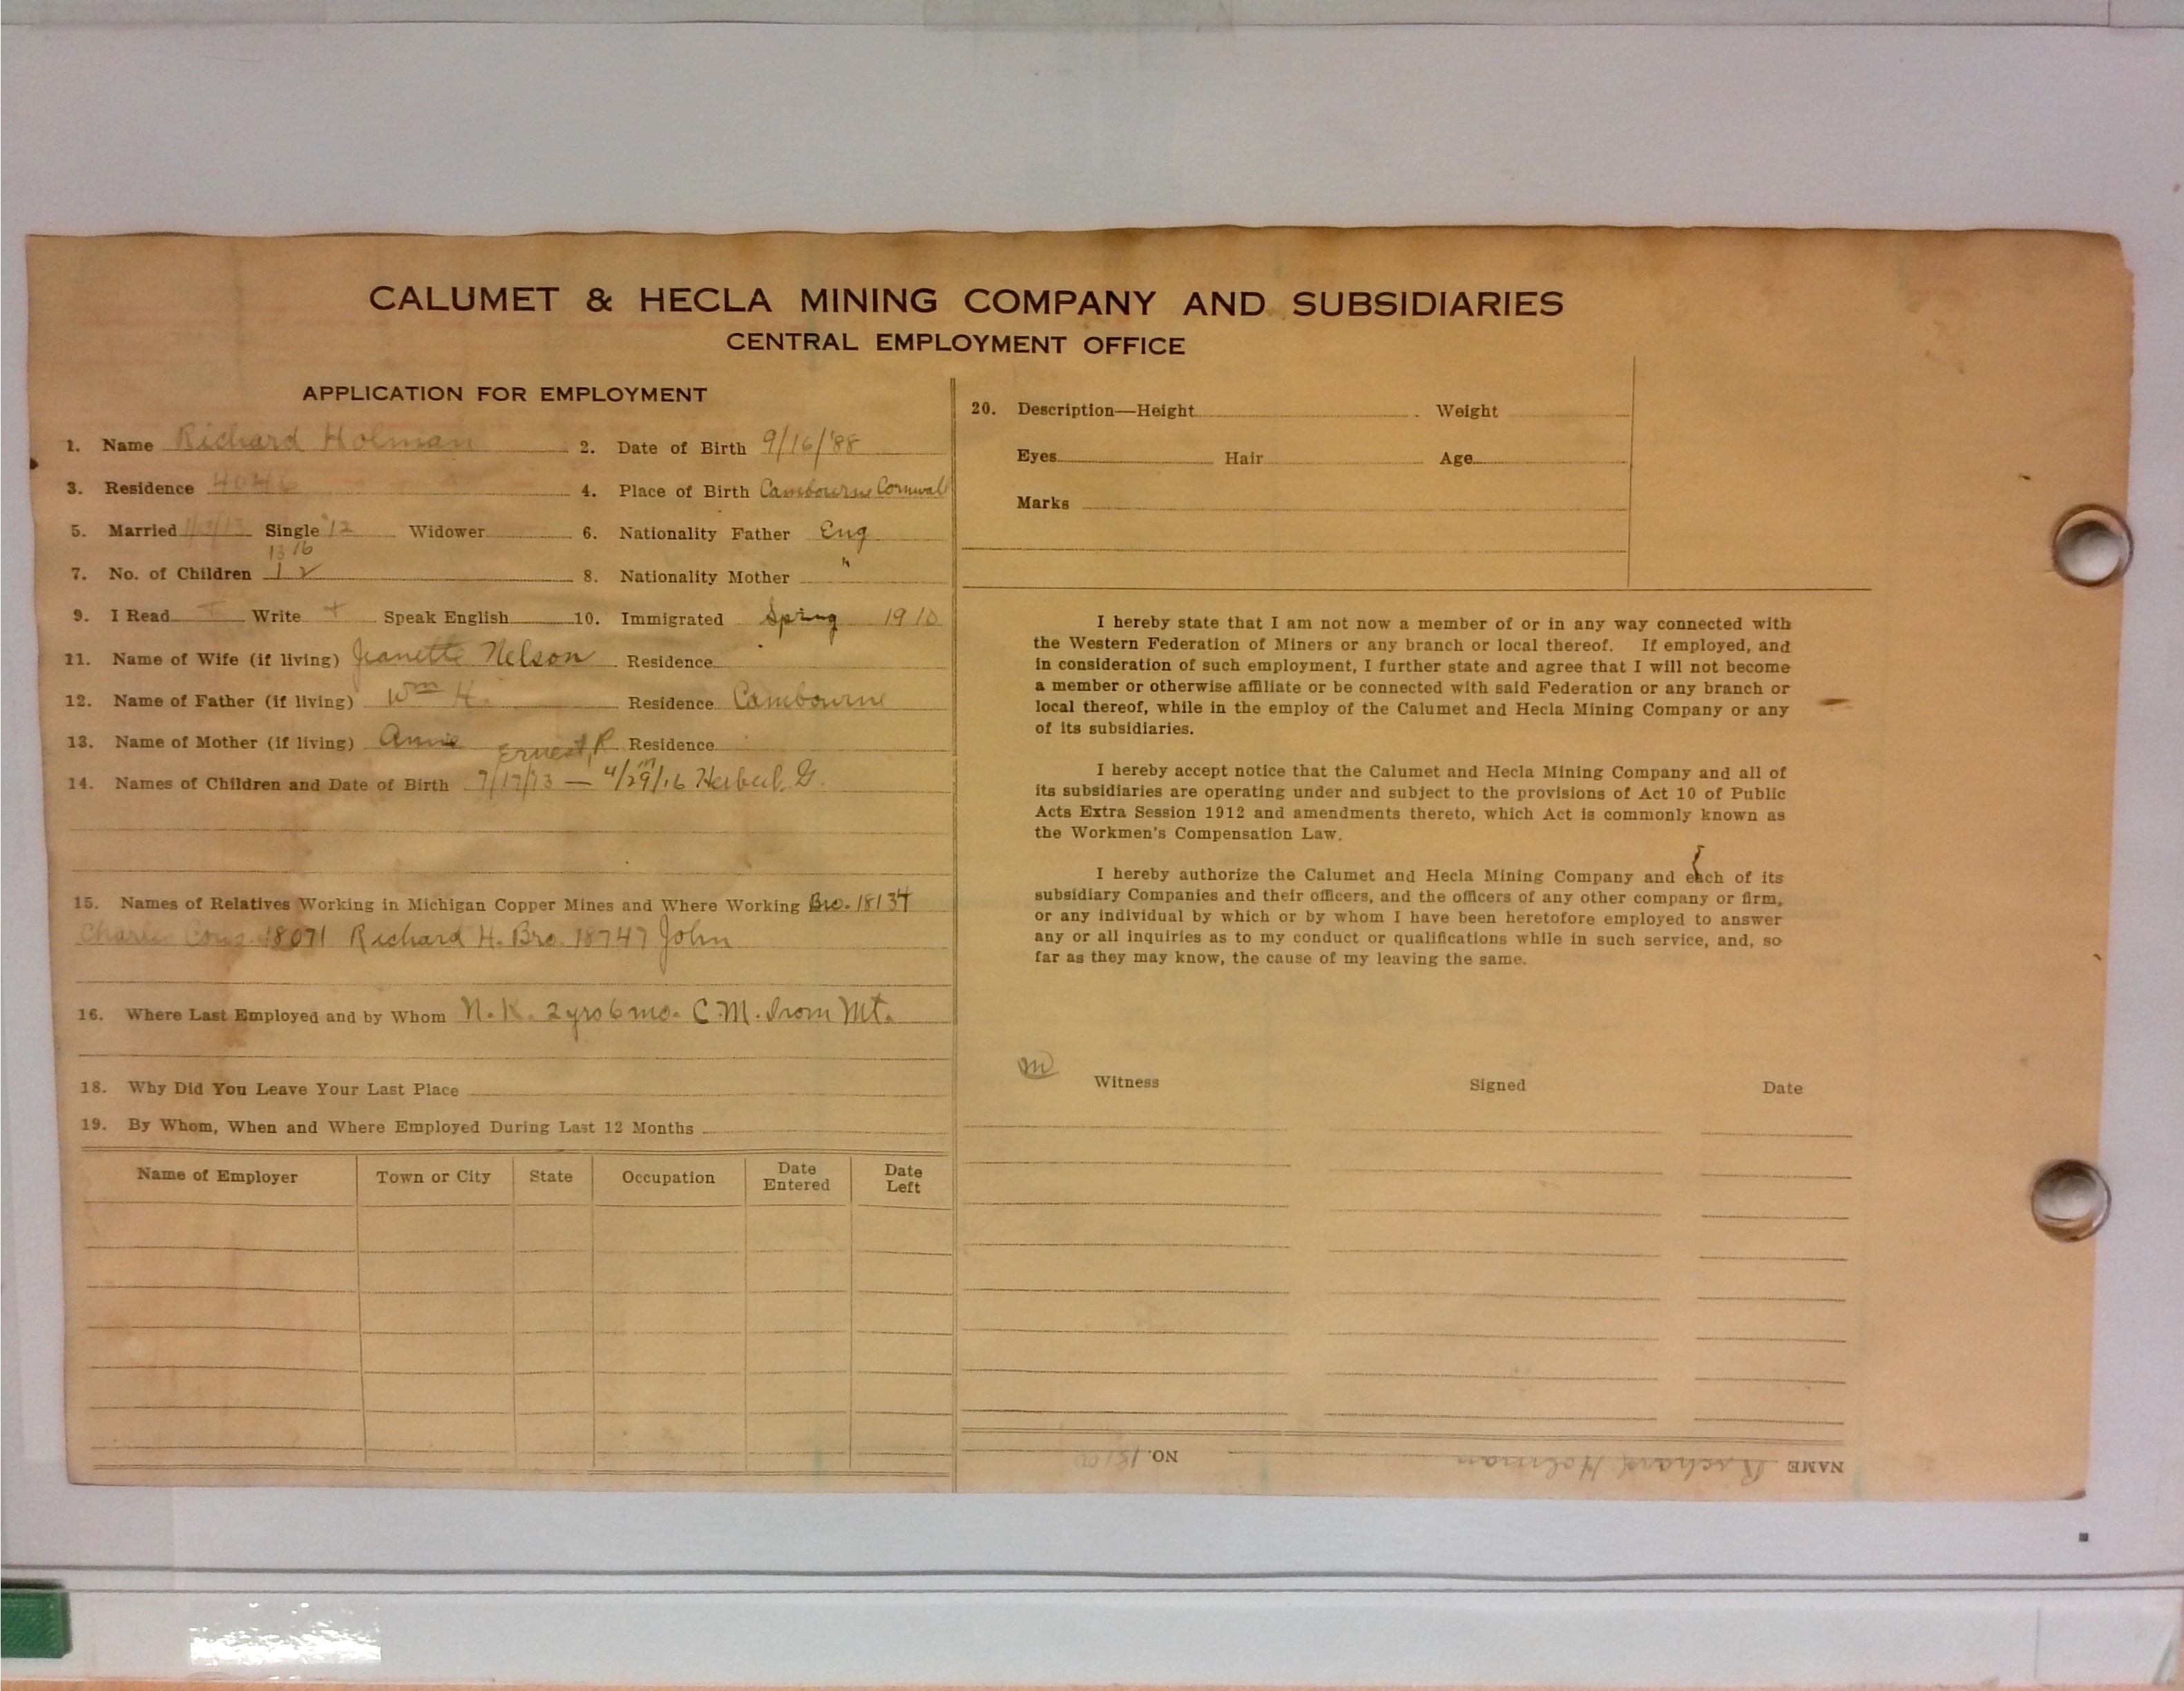 CALUMET & HECLA MINING COMPANY AND SUBSIDIARIES
CENTRAL EMPLOYMENT OFFICE
APPLICATION FOR EMPLOYMENT
1. Name Richard Holman 2. Date of Birth 9/16/'88
3. Residence 4046 4. Place of Birth Cambourne Cornwall
5. Married 1/3/13 Single '12 Widower 6. Nationality Father Eng
13 16
7. No. of Children 1 2 8. Nationality Mother "
9. I Read + Write + Speak English 10. Immigrated Spring 1910
11. Name of Wife (if living) Jeanette Nelson Residence
12. Name of Father (if living) Wm H. Residence Cambourne
13. Name of Mother (if living) Annie Residence
Ernest R
14. Names of Children and Date of Birth 7/17/13 — 4/29/16 Herbert G.
15. Names of Relatives Working in Michigan Copper Mines and Where Working Bro. 18134
Charles Cous. 18071 Richard H. Bro. 18747 John
16. Where Last Employed and by Whom N. K. 2 yrs 6 mo. C. M. from Mt.
18. Why Did You Leave Your Last Place
19. By Whom, When and Where Employed During Last 12 Months
Name of Employer Town or City State Occupation Date Entered Date Left
20. Description—Height Weight
Eyes Hair Age
Marks
I hereby state that I am not now a member of or in any way connected with
the Western Federation of Miners or any branch or local thereof. If employed, and
in consideration of such employment, I further state and agree that I will not become
a member or otherwise affiliate or be connected with said Federation or any branch or
local thereof, while in the employ of the Calumet and Hecla Mining Company or any
of its subsidiaries.
I hereby accept notice that the Calumet and Hecla Mining Company and all of
its subsidiaries are operating under and subject to the provisions of Act 10 of Public
Acts Extra Session 1912 and amendments thereto, which Act is commonly known as
the Workmen's Compensation Law.
I hereby authorize the Calumet and Hecla Mining Company and each of its
subsidiary Companies and their officers, and the officers of any other company or firm,
or any individual by which or by whom I have been heretofore employed to answer
any or all inquiries as to my conduct or qualifications while in such service, and, so
far as they may know, the cause of my leaving the same.
m
Witness Signed Date
NAME Richard Holman NO.